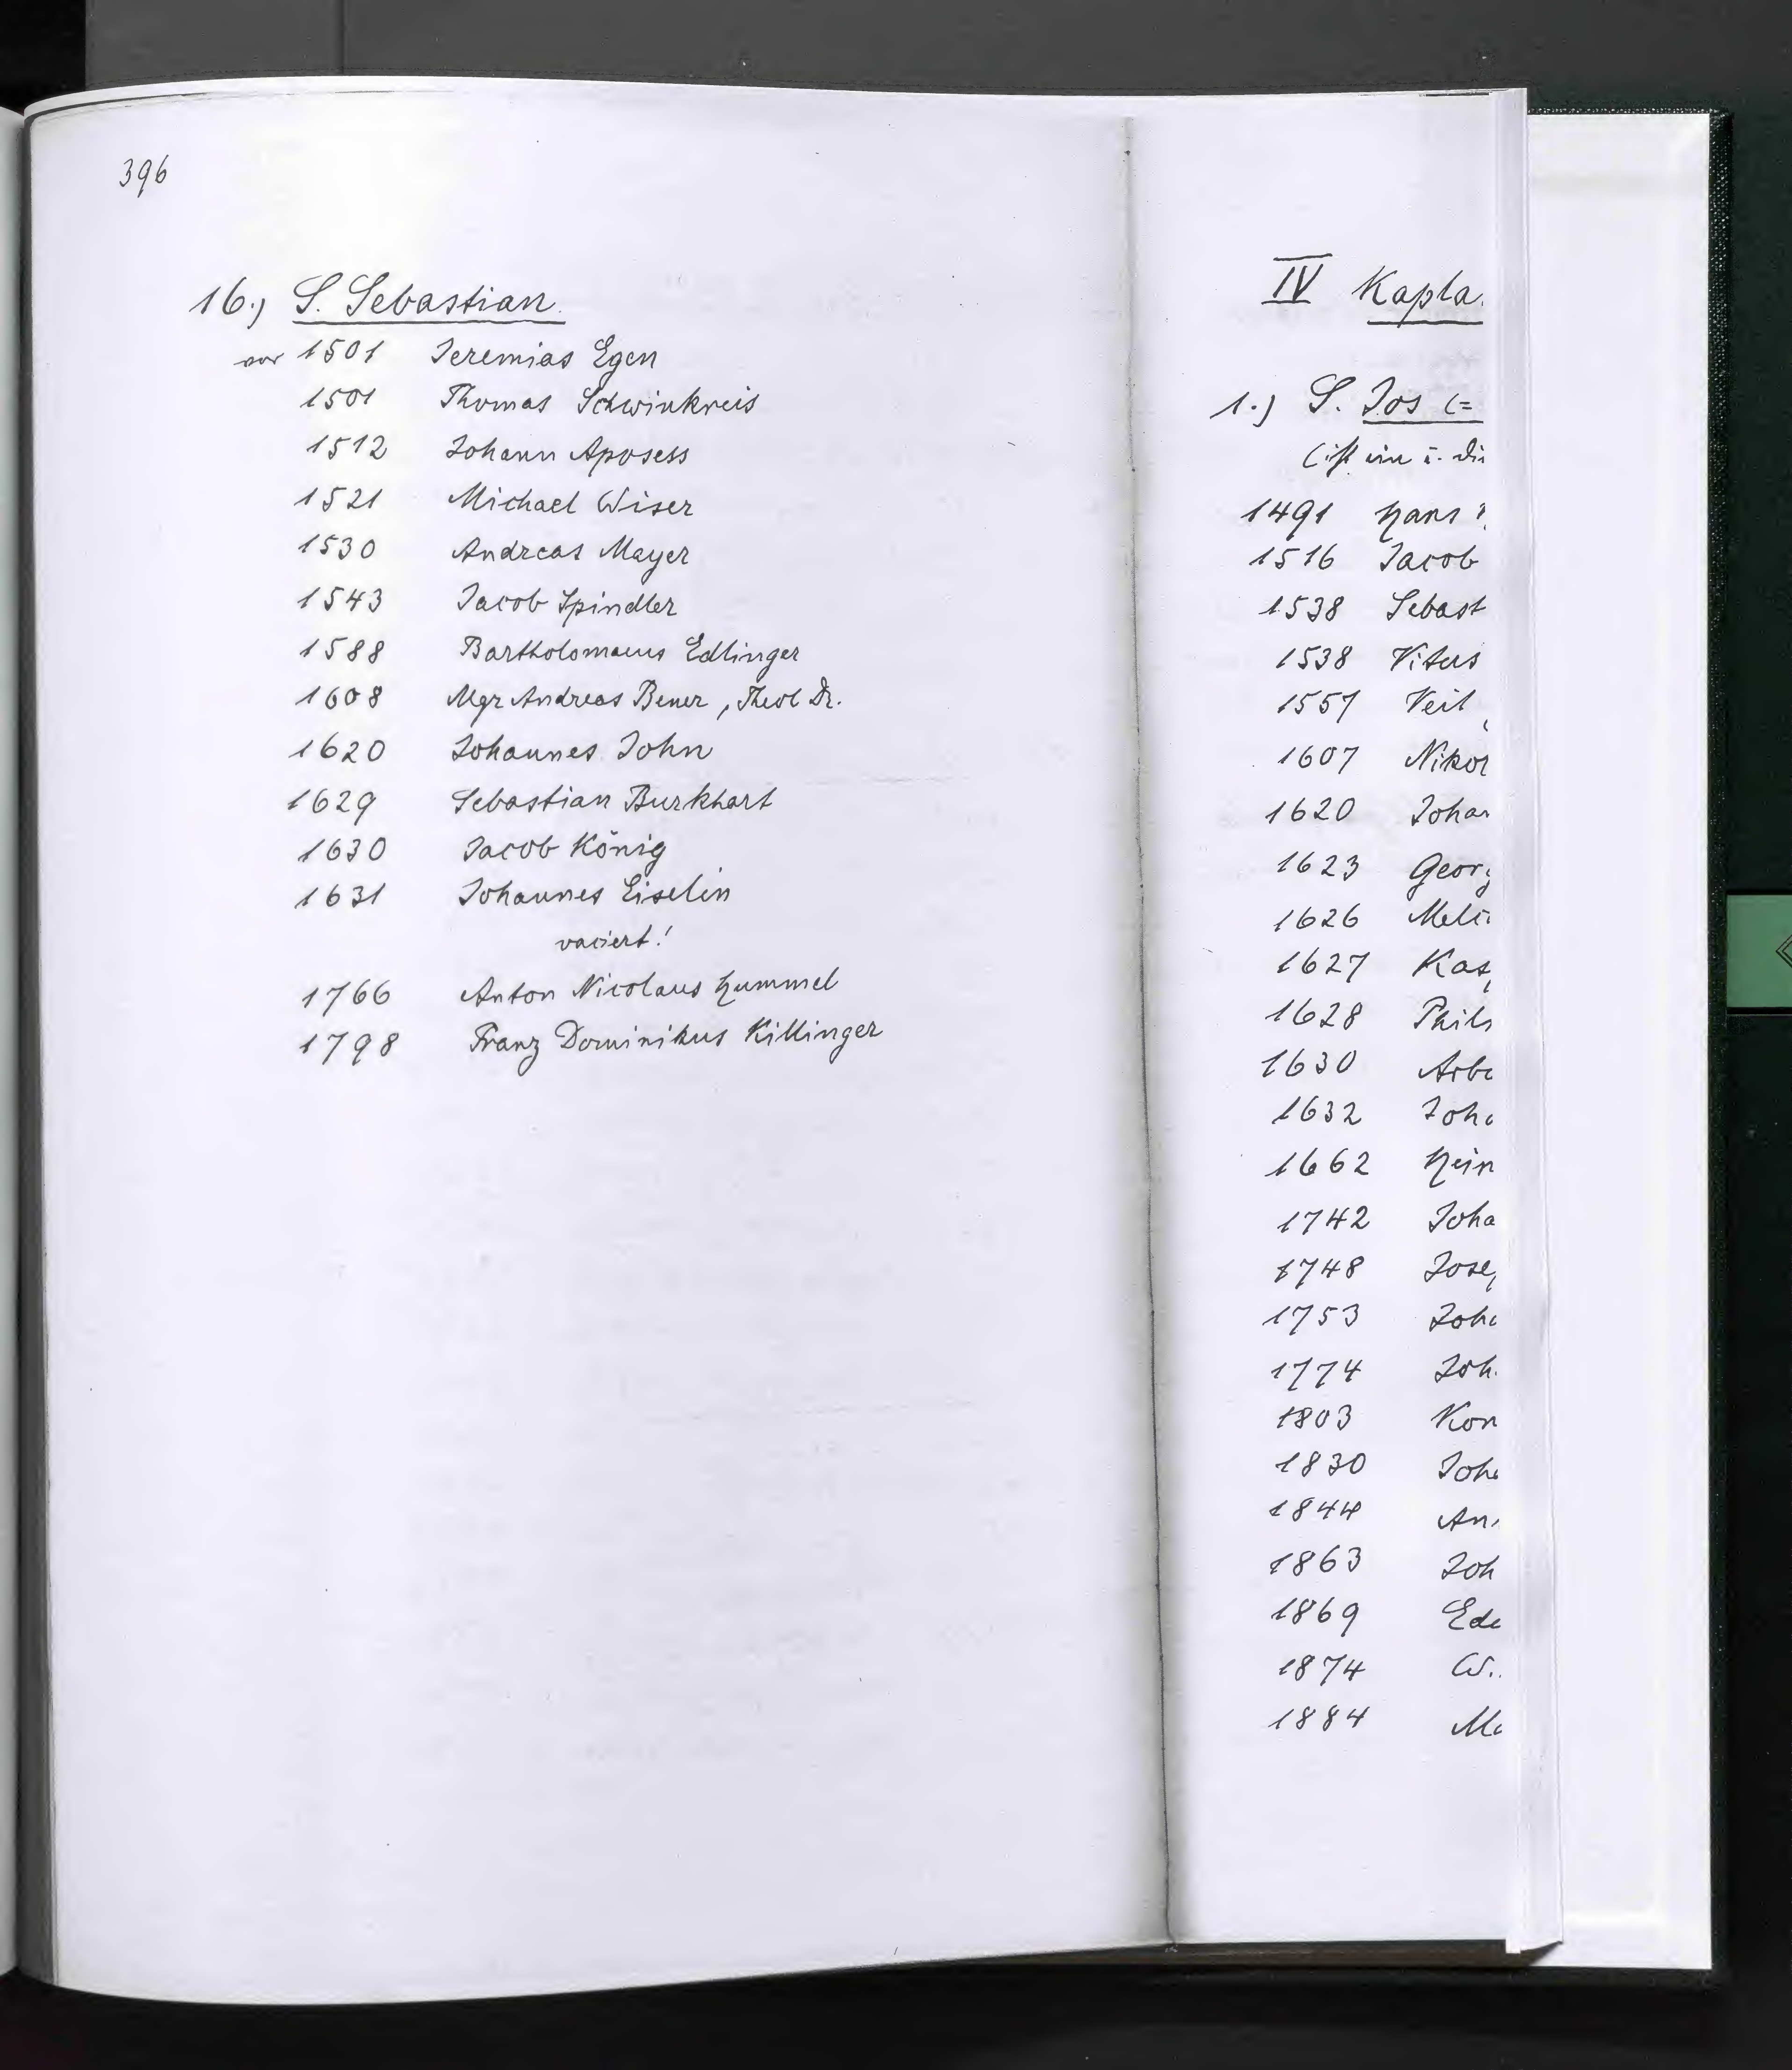 396
16.) S. Sebastian.
vor 1501 Jeremias Egen
1501 Thomas Schwinkreis
1512 Johann Aposess
1521 Michael Wiser
1530 Andreas Mayer
1543 Jacob Spindler
1588 Bartholomaeus Edlinger
1608 Mgr Andreas Bener, Theol Dr.
1620 Johannes John
1629 Sebastian Burkhart
1630 Jacob König
1631 Johannes Eiselin
vaciert!
1766 Anton Nicolaus Hummel
1798 Franz Dominikus Killinger
IV Kapla
1.) S. Jos (=
(ist ein
1491 Hans
1516 Jacob
1538 Sebast
1538 Vitus
1557 Veit
1607 Nikol
1620 Johan
1623 Georg
1626 Melc
1627 Kas
1628 Phil
1630 Arb
1632 Joh
1662 Hein
1742 Joha
1748 Jose
1753 Joh
1774 Joh
1803 Kon
1830 Joh
1844 An
1863 Joh
1869 Ed
1874 W
1884 M